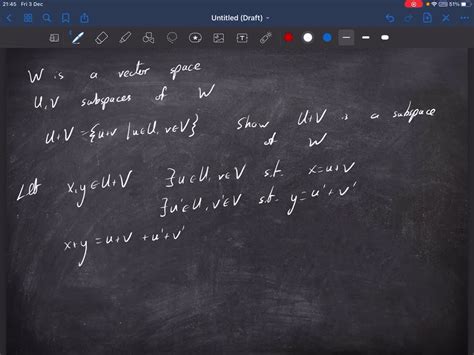 21:45 Fri 3 Dec
51%
Untitled (Draft)
W is a vector space
U, V subspaces of W
U+V = {u+v | u∈U, v∈V} Show U+V is a subspace
of W
Let x,y ∈ U+V ∃u∈U, v∈V s.t. x=u+v
∃u'∈U, v'∈V s.t. y=u'+v'
x+y = u+v+u'+v'